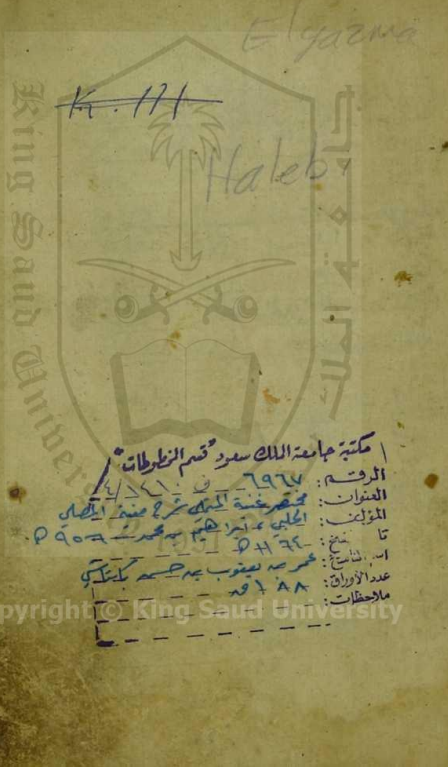 Elyazma
K. 171
Haleb
King Saud University
مكتبة جامعة الملك سعود "قسم المخطوطات"
الرقم: ٦٩٦٧
العنوان: مختصر غنية المتملي شرح منية المصلي
المؤلف: الحلبي، ابراهيم بن محمد - ٩٥٦ هـ
اسم الناسخ: عمر بن يعقوب بن حسن
عدد الأوراق: ١٨٨ ق
ملاحظات:
Copyright © King Saud University